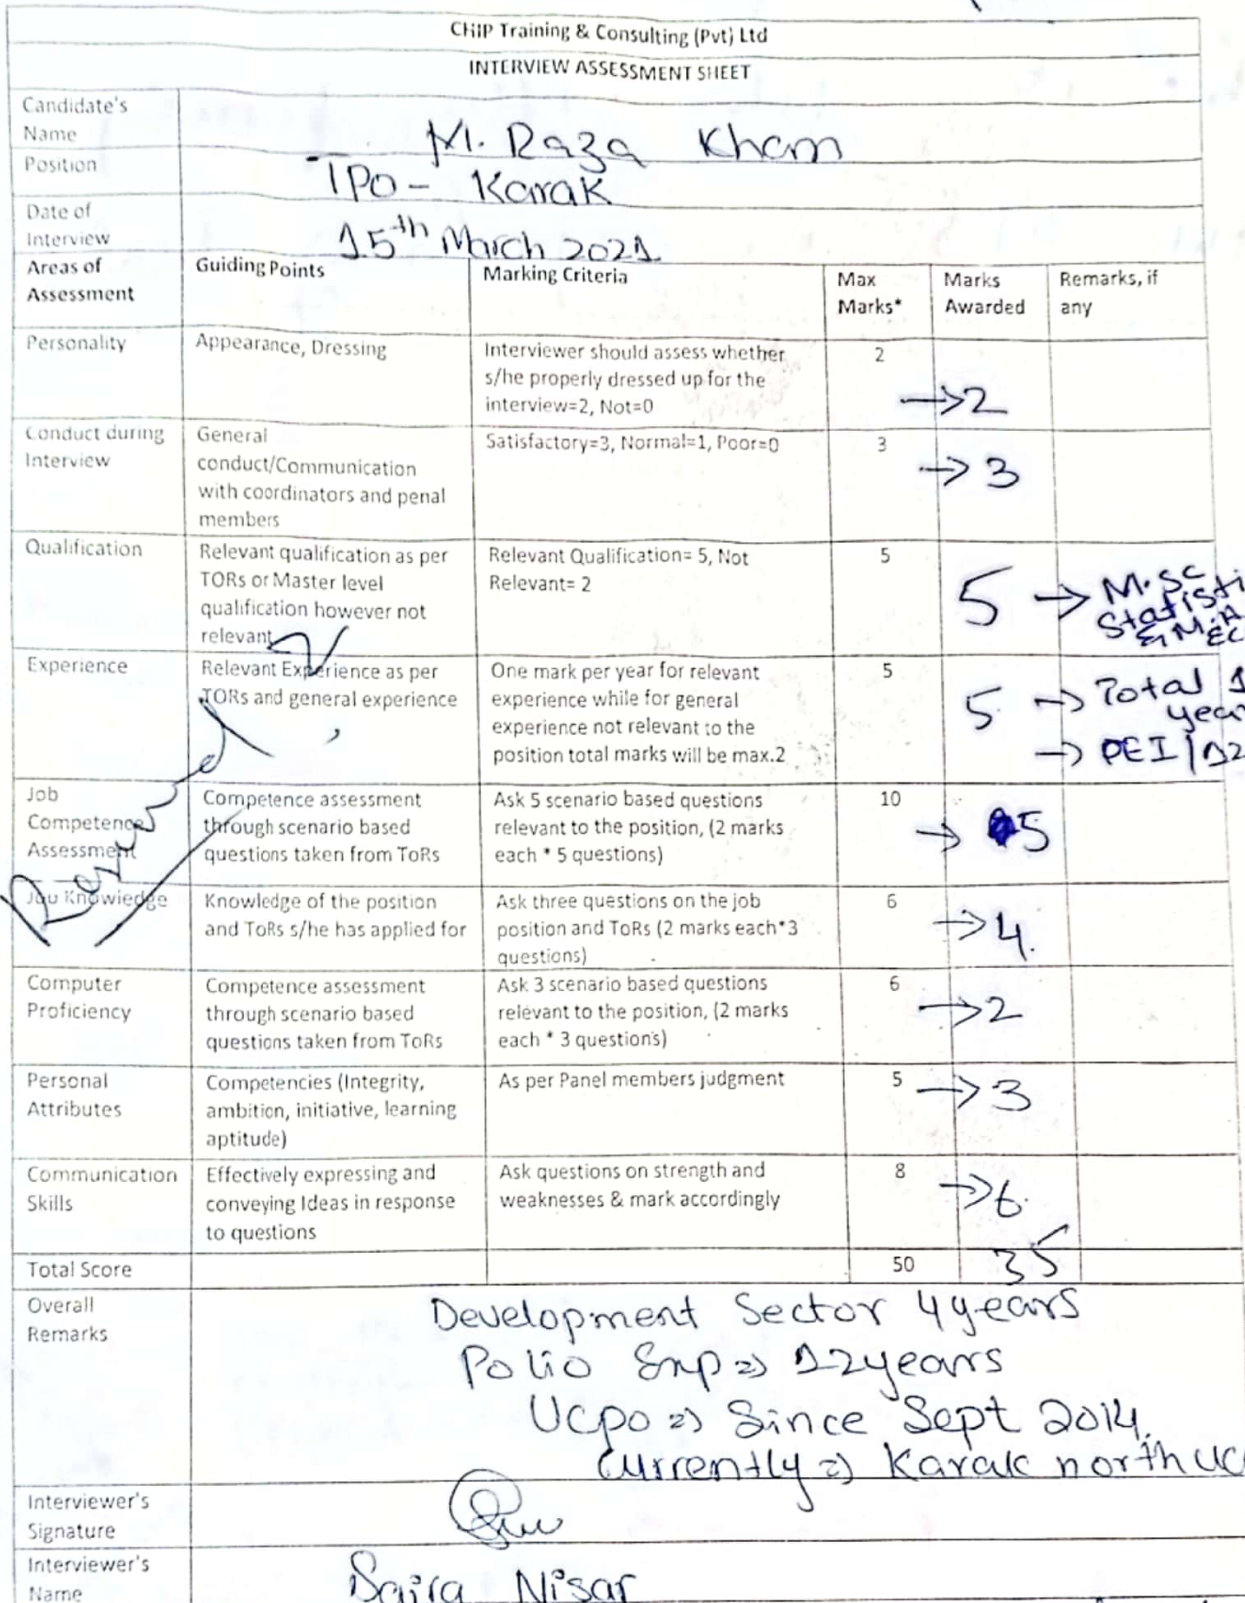 CHIP Training & Consulting (Pvt) Ltd
INTERVIEW ASSESSMENT SHEET
Candidate's
Name
M. Raza Khan
Position
TPO - Karak
Date of
Interview
15th March 2021
Areas of
Assessment
Guiding Points
Marking Criteria
Max
Marks*
Marks
Awarded
Remarks, if
any
Personality
Appearance, Dressing
Interviewer should assess whether
s/he properly dressed up for the
interview=2, Not=0
2
→2
Conduct during
Interview
General
conduct/Communication
with coordinators and penal
members
Satisfactory=3, Normal=1, Poor=0
3
→3
Qualification
Relevant qualification as per
TORs or Master level
qualification however not
relevant
Relevant Qualification= 5, Not
Relevant= 2
5
5 → M.SC
Statisti
& M.A
EC
Experience
Relevant Experience as per
TORs and general experience
One mark per year for relevant
experience while for general
experience not relevant to the
position total marks will be max.2
5
5 → Total 1
year
→ PEI/12
Job
Competence
Assessment
Competence assessment
through scenario based
questions taken from ToRs
Ask 5 scenario based questions
relevant to the position, (2 marks
each * 5 questions)
10
→ 5
Job Knowledge
Knowledge of the position
and ToRs s/he has applied for
Ask three questions on the job
position and ToRs (2 marks each*3
questions)
6
→4.
Computer
Proficiency
Competence assessment
through scenario based
questions taken from ToRs
Ask 3 scenario based questions
relevant to the position, (2 marks
each * 3 questions)
6
→2
Personal
Attributes
Competencies (Integrity,
ambition, initiative, learning
aptitude)
As per Panel members judgment
5
→3
Communication
Skills
Effectively expressing and
conveying Ideas in response
to questions
Ask questions on strength and
weaknesses & mark accordingly
8
→6.
Total Score
50
35
Overall
Remarks
Development Sector 4 years
Polio Exp => 12 years
UCPO => Since Sept 2014.
Currently => Karak north UC
Interviewer's
Signature
Interviewer's
Name
Saira Nisar